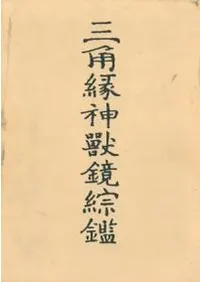 三角緣神獸鏡綜鑑